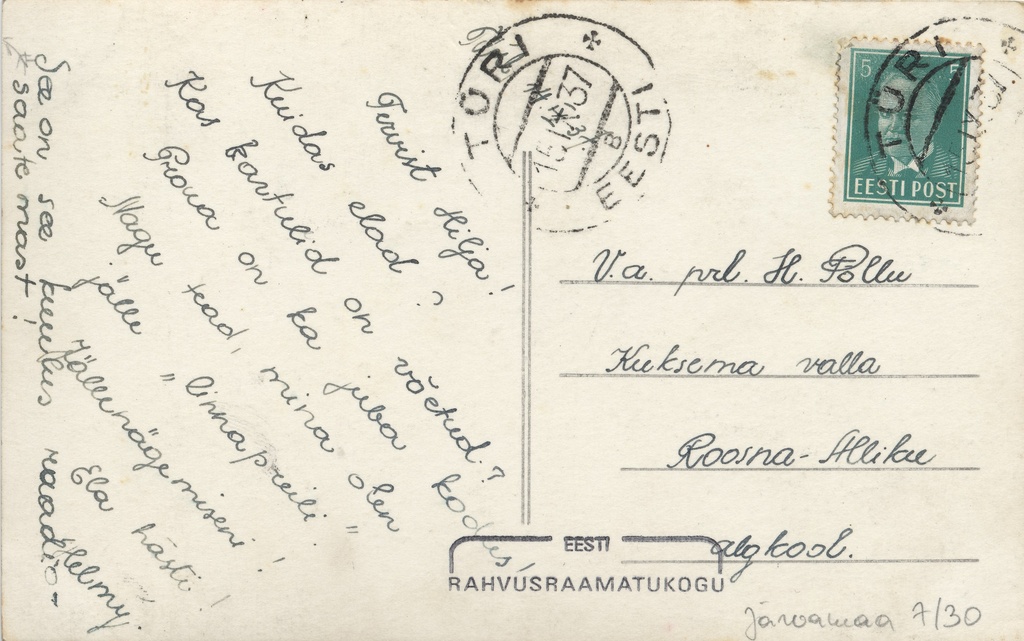 Tervist Hilja!
Kuidas elad?
Kas kartulid on võetud?
Proua on ka juba kodus,
Nagu tead, mina olen
jälle "linnapreili"!
Jällenägemiseni!
Ela hästi!
Helmy.
See on see kuulus raadio-
saatemast!
TÜRI
15.IX.37
B
EESTI
5 5
EESTI POST
TÜRI
V.a. prl. H. Põllu
Kuksema valla
Roosna-Alliku
algkool.
EESTI
RAHVUSRAAMATUKOGU
Järvamaa 7/30